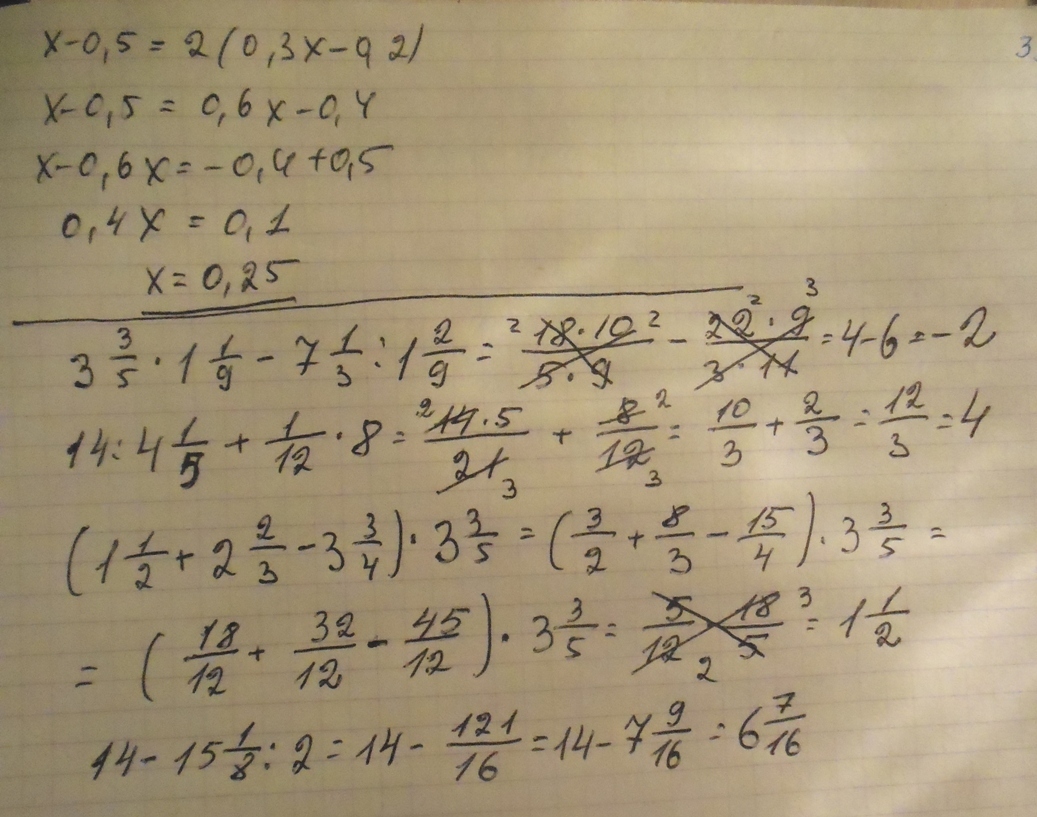 x-0,5 = 2(0,3x-0,2)
3
x-0,5 = 0,6x-0,4
x-0,6x=-0,4+0,5
0,4x = 0,1
x=0,25
3 3/5 · 1 1/9 - 7 1/3 : 1 2/9 = 2 18·10 2 / 5·9 - 22 2 · 9 3 / 3·11 = 4-6=-2
14:4 1/5 + 1/12 · 8 = 2 14·5 / 21 3 + 8 2 / 12 3 = 10/3 + 2/3 = 12/3 = 4
(1 1/2 + 2 2/3 - 3 3/4) · 3 3/5 = (3/2 + 8/3 - 15/4) · 3 3/5 =
= (18/12 + 32/12 - 45/12) · 3 3/5 = 5/12 2 18 3 / 5 = 1 1/2
14-15 1/8 : 2 = 14 - 121/16 = 14-7 9/16 = 6 7/16